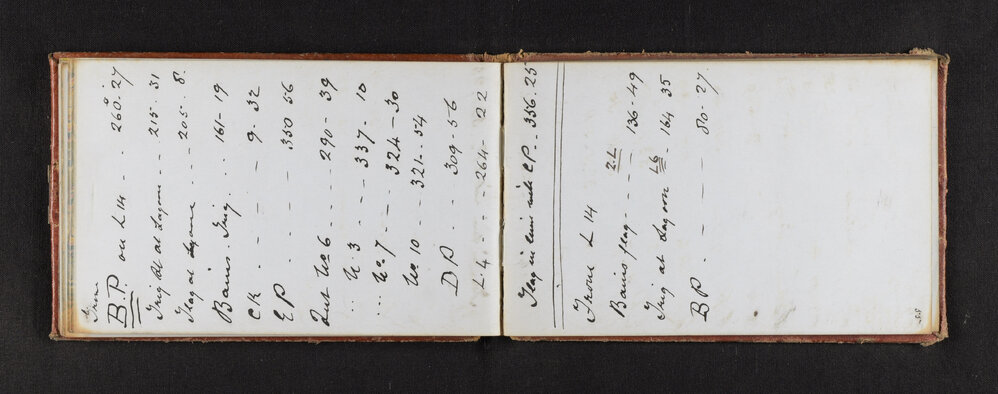 From
B.P on L 14 - - 260°. 27
Trig St at Lagoon - - 215 - 31
Flag at Lagoon - - 205 - 8.
Bains. Trig. - - 161 - 19
C K - - - 9. 32
E P - - - 350 56
Tut No 6 - - - 290 - 39
... N. 3 - - - 337. - 10
... No. 7 - - - 324 - 30
No. 10 - - - 321 - 54
D P - - - 309 - 56
L. 4 - - - 264 - 22
Flag in line with C.P. - - 356. 25
From L 14
Bains flag - - - 2.L - 136 - 49
Trig at Lagoon L6 - 164 35
B P. - - - 80 - 27.